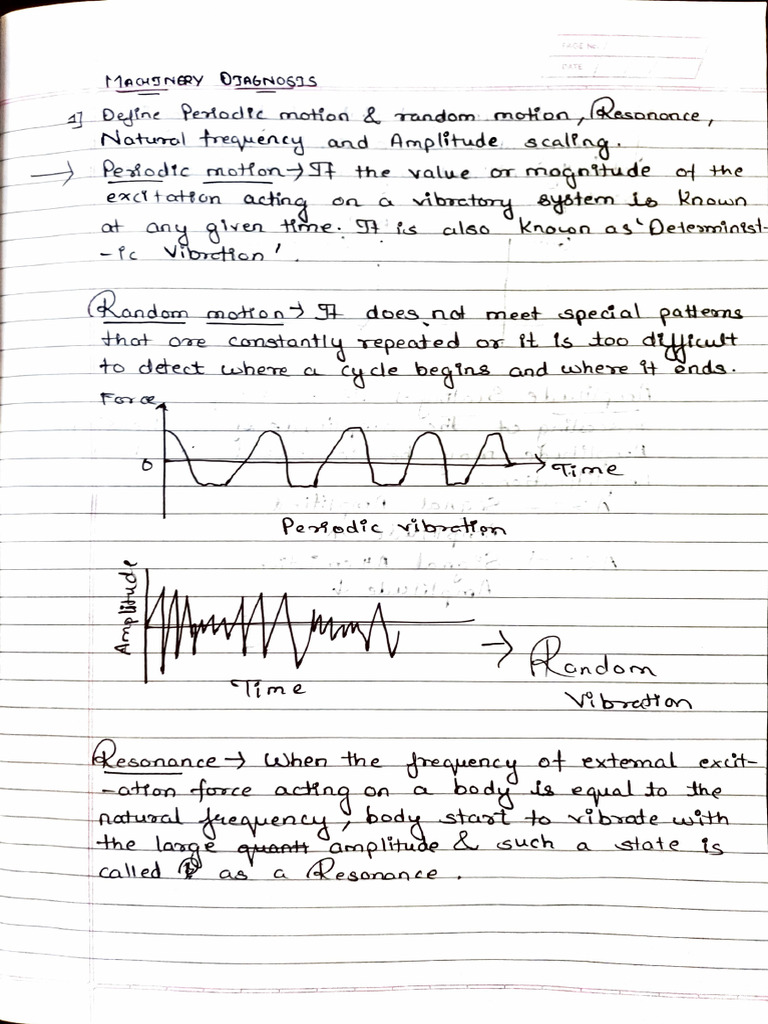 PAGE NO.
DATE
MACHINERY DIAGNOSIS
1] Define Periodic motion & random motion, Resonance,
Natural frequency and Amplitude scaling.
→ Periodic motion → If the value or magnitude of the
excitation acting on a vibratory system is Known
at any given time. It is also Known as 'Determinist-
-ic Vibration'.
Random motion → It does not meet special patterns
that are constantly repeated or it is too difficult
to detect where a cycle begins and where it ends.
Force
0
→ Time
Periodic vibration
Amplitude
Time
→ Random
Vibration
Resonance → When the frequency of external excit-
-ation force acting on a body is equal to the
natural frequency, body start to vibrate with
the large quanti amplitude & such a state is
called as a Resonance.